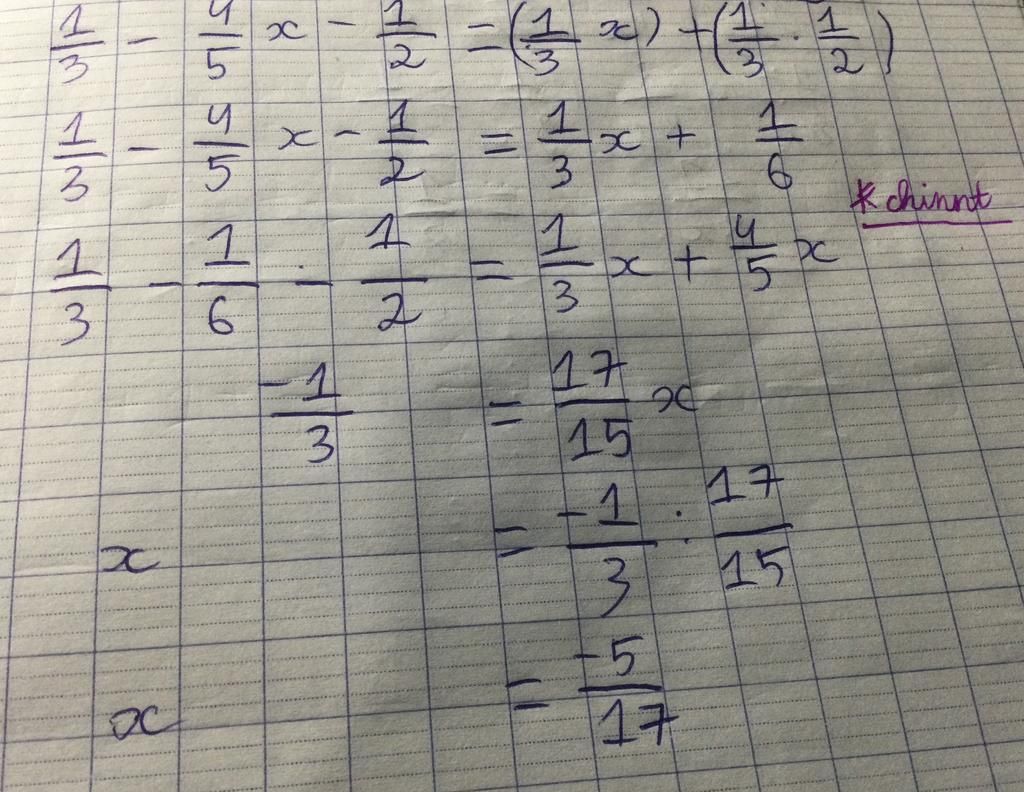 1/3 - 4/5 x - 1/2 = (1/3 x) + (1/3 · 1/2)
1/3 - 4/5 x - 1/2 = 1/3 x + 1/6
* chinnt
1/3 - 1/6 - 1/2 = 1/3 x + 4/5 x
-1/3 = 17/15 x
x = -1/3 : 17/15
x = -5/17